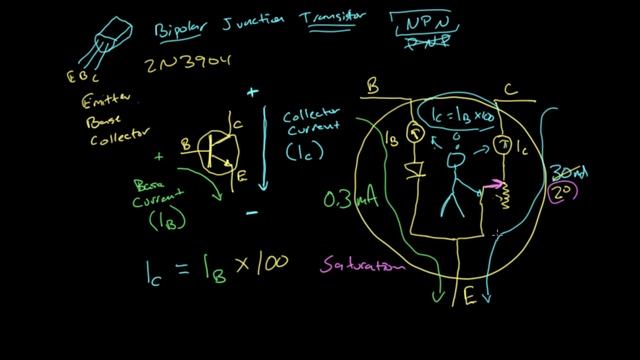 Bipolar Junction Transistor NPN
PNP
E B C
2N3904
Emitter
Base
Collector
+
C
B
E
+
Base
Current
(IB)
Collector
Current
(IC)
-
IC = IB × 100
B
C
IC = IB × 100
IB
IC
0.3mA
30mA
20
Saturation
E